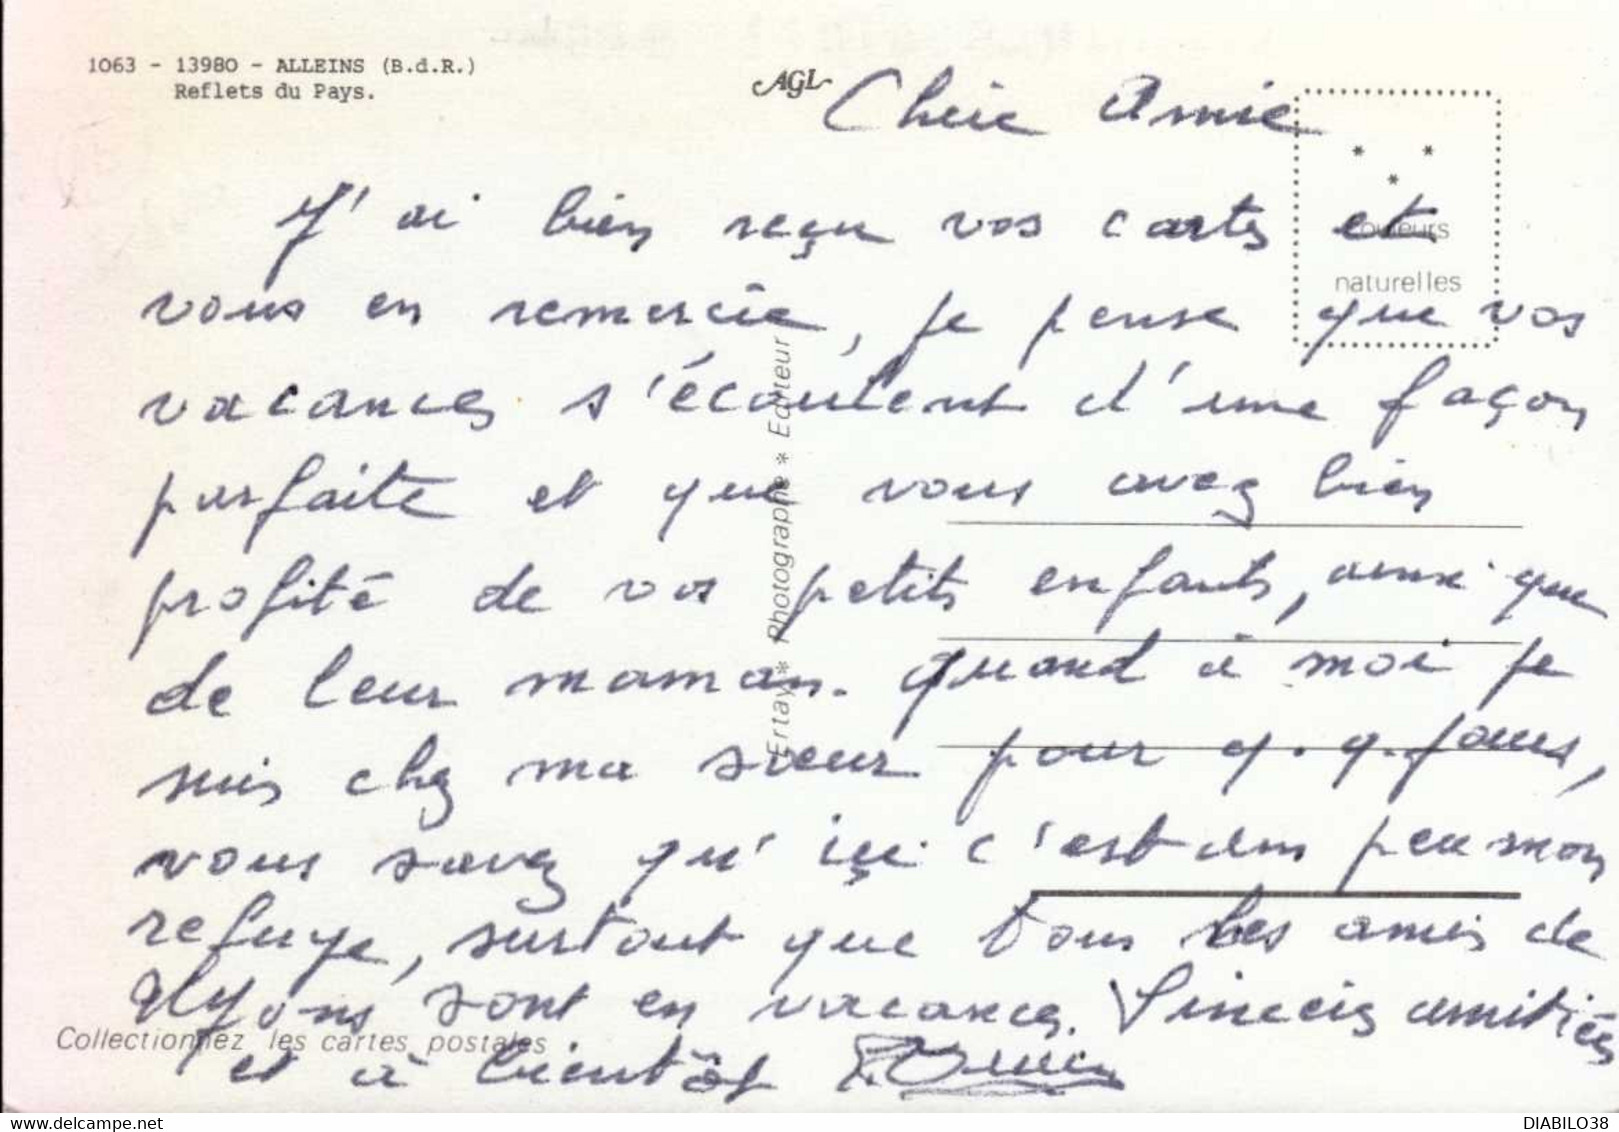 1063 - 13980 - ALLEINS (B.d.R.)
Reflets du Pays.
AGL
Chère Amie
J'ai bien reçu vos cartes et
couleurs
naturelles
vous en remercie, je pense que vos
vacances s'écoulent d'une façon
parfaite et que vous avez bien
profité de vos petits enfants, ainsi que
de leur maman. quand à moi je
suis chez ma sœur pour q.q. jours,
vous savez qu'içi c'est un peu mon
refuge, surtout que tous les amis de
Lyon sont en vacances. Sincères amitiés
et à bientôt
Ertay * Photographe * Editeur
Collectionnez les cartes postales
DIABILO38